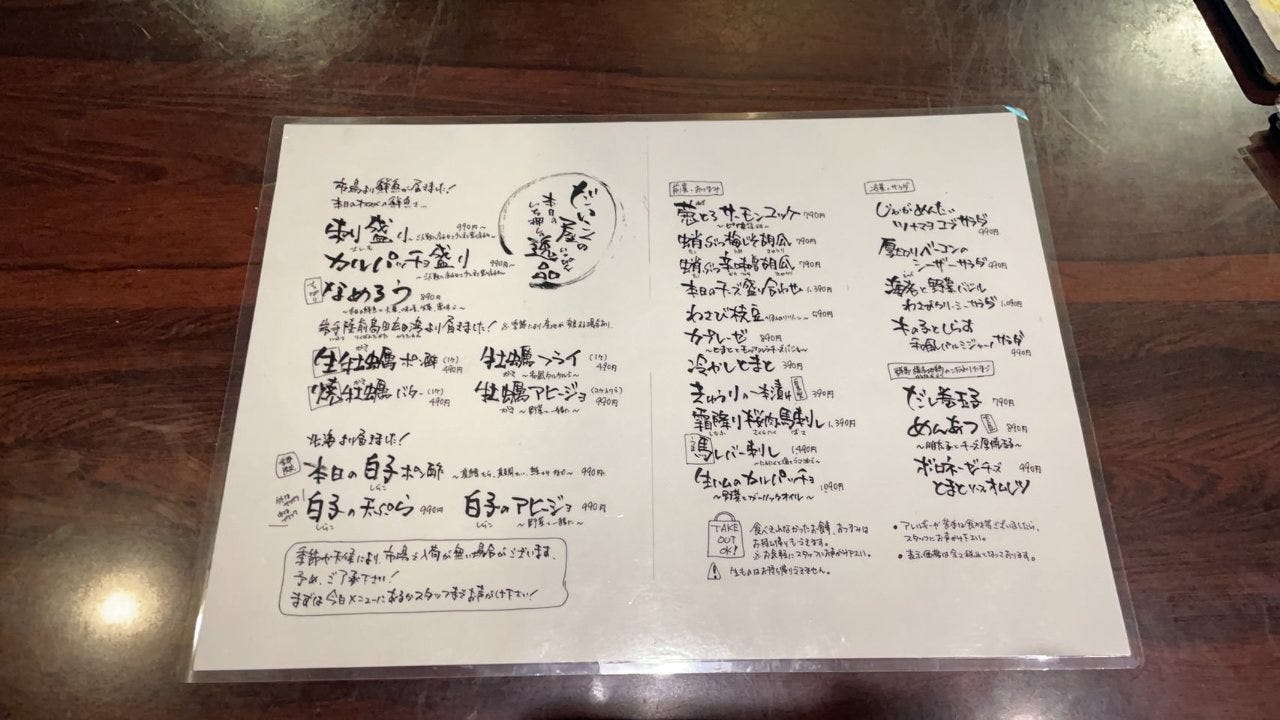 だいコンの屋
本日の
いち押し
逸品
いっぴん
市場より鮮魚が届きました！
本日のおススメ鮮魚で…
刺し盛り 990円〜
よしも
カルパッチョ盛り 990円〜
なめろう 890円
岩手陸前高田広田湾より届きました！
生牡蠣ポン酢(1ケ) 490円
かき
牡蠣フライ(1ケ) 490円
焼牡蠣バター(1ケ) 490円
かき
牡蠣アヒージョ 990円
かき 〜野菜と一緒に〜
北海より届きました！
本日の白子ポン酢 990円
しらこ
白子の天ぷら 990円
しらこ
白子のアヒージョ 990円
しらこ 〜野菜と一緒に〜
季節や天候により、市場に入荷が無い場合がございます、
予め、ご了承下さい！
まずは今日メニューにあるかスタッフまでお声がけ下さい！
前菜・おつまみ
葱とろサーモンユッケ 790円
蛸ぶつ梅じそ胡瓜 790円
蛸ぶつ辛味噌胡瓜 790円
本日のチーズ盛り合わせ 1,390円
わさび枝豆 590円
カプレーゼ 890円
〜とまととモッツァレラチーズバジル〜
冷やしとまと 390円
きゅうりの一本漬け 390円
霜降り桜肉馬刺し 1,390円
馬レバー刺し 1,490円
〜にんにくと塩とゴマ油で〜
生ハムのカルパッチョ 1,090円
〜野菜とガーリックオイル〜
TAKE
OUT
OK!
食べきれなかったお料理、おつまみは
お持ち帰りもできます。
※お気軽にスタッフにお声がけ下さい。
生ものはお持ち帰りできません。
冷菜・サラダ
じゃがめんたい
ツナマヨコブサラダ 990円
厚切りベーコンの
シーザーサラダ 990円
海老と野菜バジル
わさびクリーミーサラダ 1,090円
木の子としらす
和風パルミジャーノサラダ 990円
だし巻玉子 790円
めんあつ 890円
〜明太子とチーズ厚焼玉子〜
ボロネーゼチーズ 990円
とまとソースオムレツ
・アレルギーや苦手な食材等ございましたら、
スタッフにお声がけ下さい。
・表示価格は全て税込となっております。